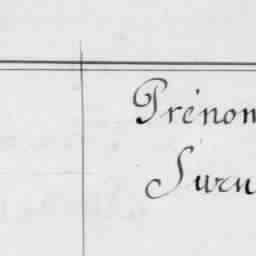 Prénom
Surn